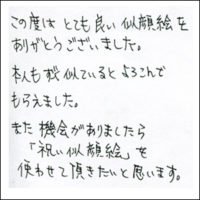 この度は とても良い 似顔絵を
ありがとうございました。
本人も 似ていると よろこんで
もらえました。
また 機会がありましたら
「祝い似顔絵」を
使わせて頂きたいと思います。